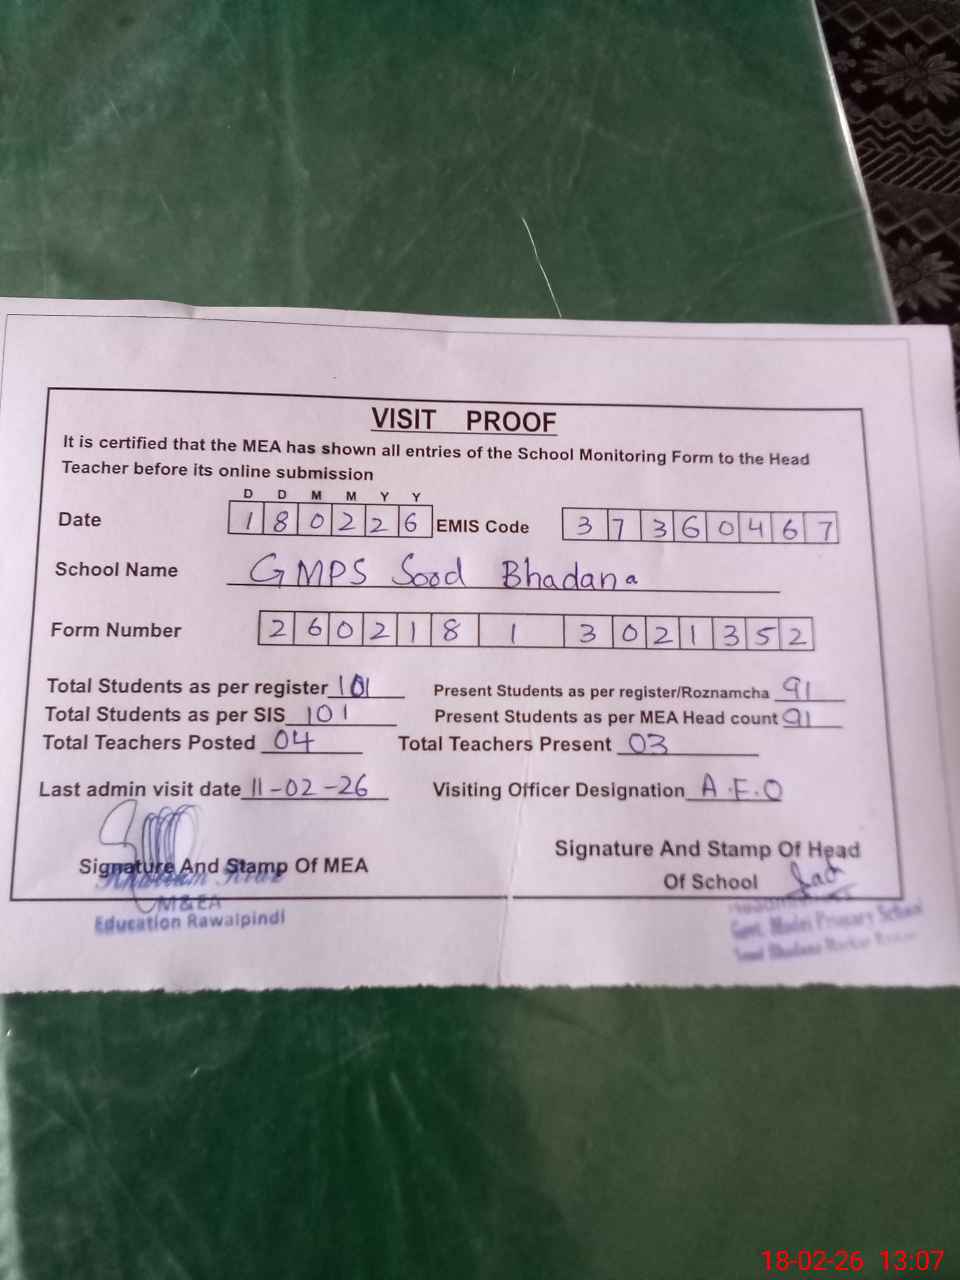 VISIT PROOF
It is certified that the MEA has shown all entries of the School Monitoring Form to the Head
Teacher before its online submission
D D M M Y Y
Date 1 8 0 2 2 6 EMIS Code 3 7 3 6 0 4 6 7
School Name GMPS Sood Bhadana
Form Number 2 6 0 2 1 8 1 3 0 2 1 3 5 2
Total Students as per register 101 Present Students as per register/Roznamcha 91
Total Students as per SIS 101 Present Students as per MEA Head count 91
Total Teachers Posted 04 Total Teachers Present 03
Last admin visit date 11-02-26 Visiting Officer Designation A.E.O
Signature And Stamp Of MEA Signature And Stamp Of Head
Of School
M&EA
Education Rawalpindi
Govt. Model Primary School
Sood Bhadana
18-02-26 13:07